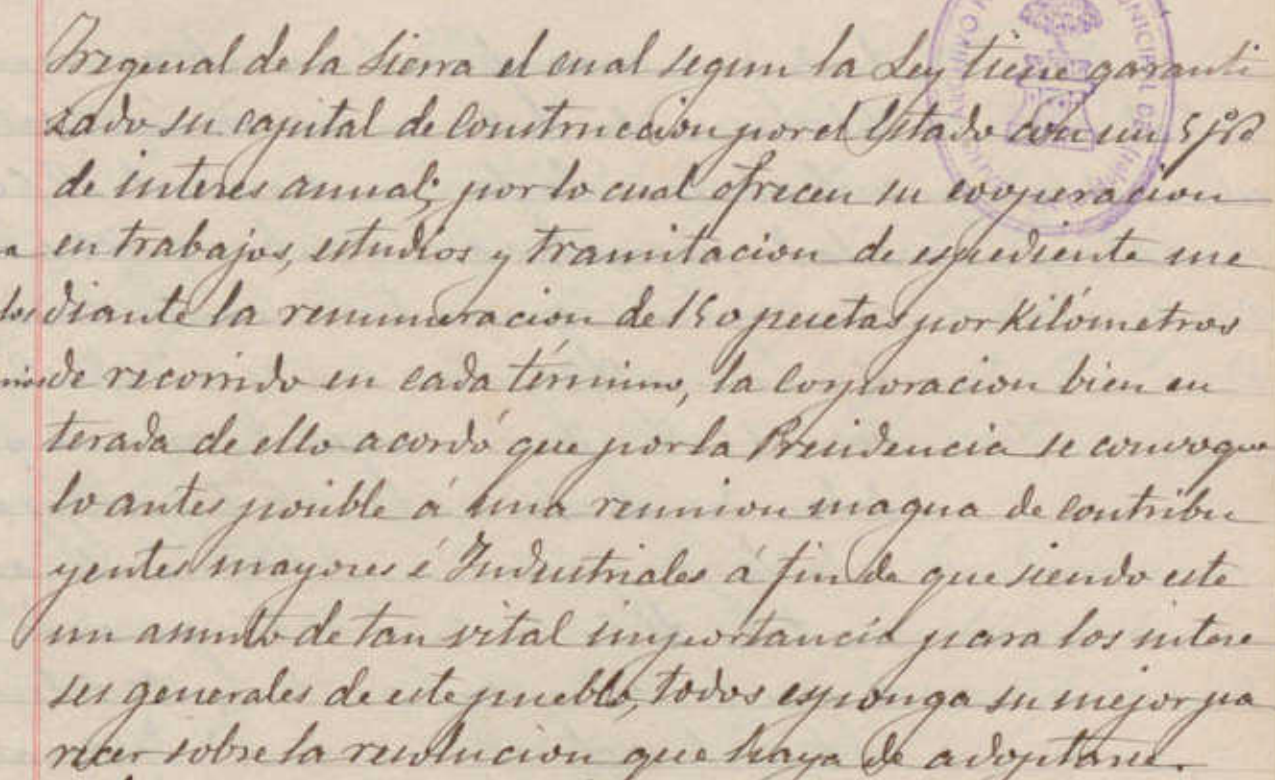 Fregenal de la Sierra el cual segun la Ley tiene garanti
zado su capital de construccion por el Estado con un 5 p%
de interes anual; por lo cual ofrecen su cooperacion
en trabajos, estudios y tramitacion de espediente me
diante la remuneracion de 150 pesetas por Kilómetros
de recorrido en cada término, la corporacion bien en
terada de ello acordó que por la Presidencia se convoque
lo antes posible á una reunion magna de contribu
yentes mayores é Industriales á fin de que siendo este
un asunto de tan vital importancia para los intere
ses generales de este pueblo, todos esponga su mejor pa
recer sobre la resolucion que haya de adoptarse.